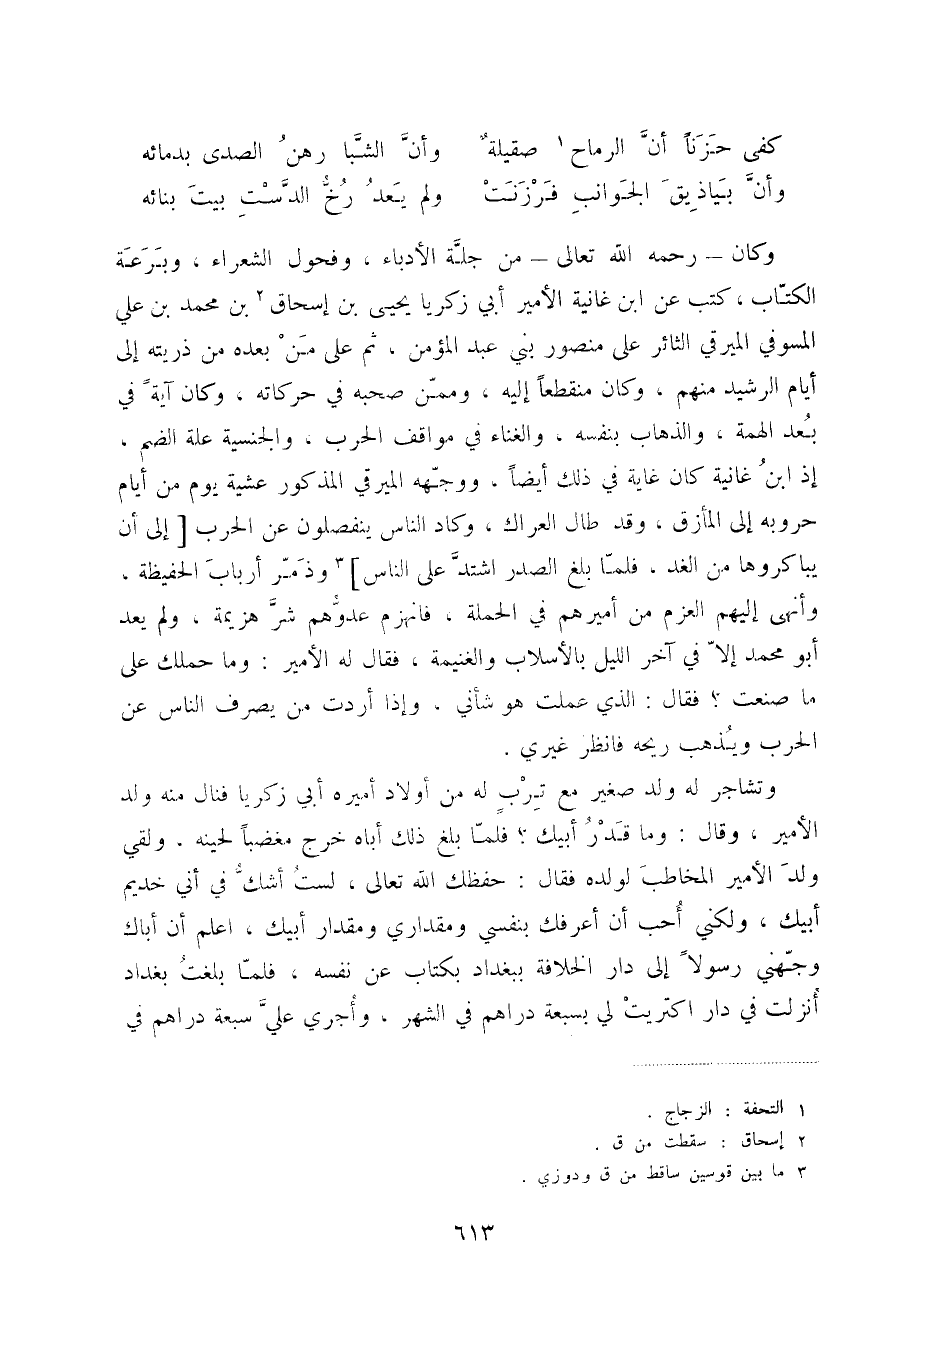 كفى حَزَناً أنَّ الرماح ١ صقيلةٌ وأنَّ الشَّبا رهنُ الصدى بدمائه
وأنَّ بَياذِيقَ الجَوانبِ فَرْزَنَتْ ولم يَعدُ رُخُّ الدَّسْتِ بيتَ بنائه
وكان – رحمه الله تعالى – من جلَّة الأدباء ، وفحول الشعراء ، وبَرَعَة
الكتّاب ، كتب عن ابن غانية الأمير أبي زكريا يحيى بن إسحاق ٢ بن محمد بن علي
المسوفي الميرقي الثائر على منصور بني عبد المؤمن ، ثم على مَنْ بعده من ذريته إلى
أيام الرشيد منهم ، وكان منقطعاً إليه ، وممّن صحبه في حركاته ، وكان آيةً في
بُعد الهمة ، والذهاب بنفسه ، والغناء في مواقف الحرب ، والجنسية علة الضم ،
إذ ابنُ غانية كان غاية في ذلك أيضاً . ووجّهه الميرقي المذكور عشية يوم من أيام
حروبه إلى المأزق ، وقد طال العراك ، وكاد الناس ينفصلون عن الحرب [ إلى أن
يباكروها من الغد . فلمّا بلغ الصدر اشتدَّ على الناس] ٣ وذَمّر أربابَ الحفيظة ،
وأنهى إليهم العزم من أميرهم في الحملة ، فانهزم عدوُّهم شرَّ هزيمة ، ولم يعد
أبو محمد إلاّ في آخر الليل بالأسلاب والغنيمة ، فقال له الأمير : وما حملك على
ما صنعت ؟ فقال : الذي عملت هو شأني . وإذا أردت من يصرف الناس عن
الحرب ويُذهب ريحه فانظر غيري .
وتشاجر له ولد صغير مع تِرْبٍ له من أولاد أميره أبي زكريا فنال منه ولد
الأمير ، وقال : وما قَدْرُ أبيك ؟ فلمّا بلغ ذلك أباه خرج مغضباً لحينه . ولقي
ولدَ الأمير المخاطبَ لولده فقال : حفظك الله تعالى ، لستُ أشكُّ في أني خديم
أبيك ، ولكني أُحب أن أعرفك بنفسي ومقداري ومقدار أبيك ، اعلم أن أباك
وجّهني رسولاً إلى دار الخلافة ببغداد بكتاب عن نفسه ، فلمّا بلغتُ بغداد
أُنزلت في دار اكتريتْ لي بسبعة دراهم في الشهر ، وأُجري عليَّ سبعة دراهم في
١ التحفة : الزجاج .
٢ إسحاق : سقطت من ق .
٣ ما بين قوسين ساقط من ق ودوزي .
٦١٣